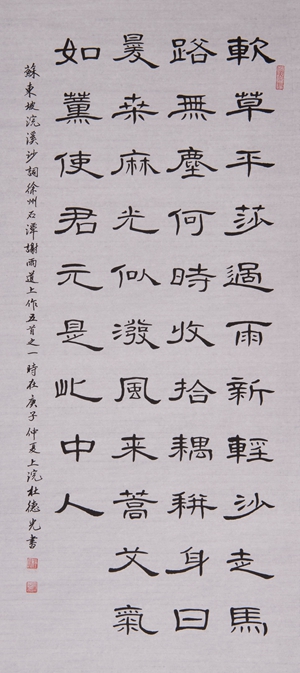 軟草平莎過雨新輕沙走馬
路無塵何時收拾耦耕身日
暖桒麻光似潑風來蒿艾氣
如薰使君元是此中人
蘇東坡浣溪沙詞徐州石潭謝雨道上作五首之一時在庚子仲夏上浣杜德光書